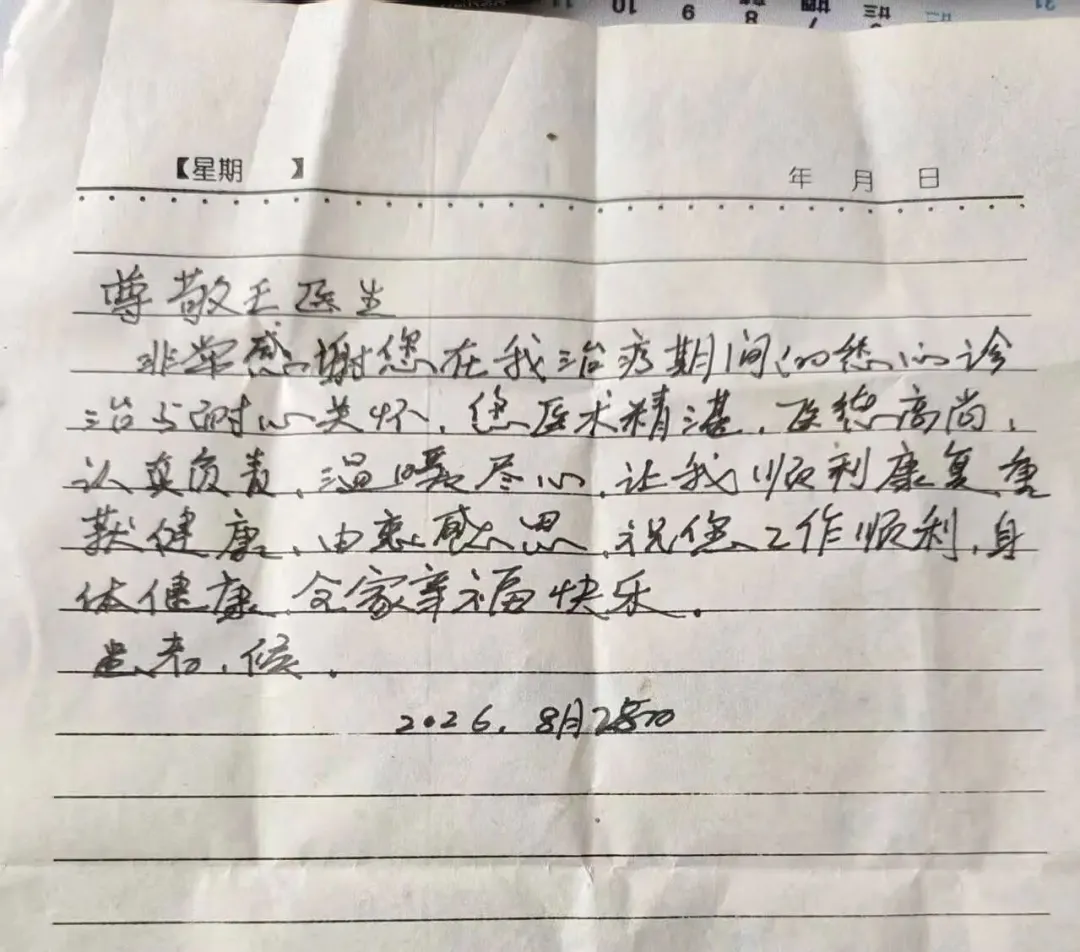 11 10 9 8 7
【星期 】 年 月 日
尊敬王医生
非常感谢您在我治疗期间的悉心诊
治与耐心关怀，您医术精湛，医德高尚，
认真负责，温暖尽心，让我顺利康复，重
获健康，由衷感恩，祝您工作顺利，身
体健康，全家幸福快乐。
患者，侯。
2026.8月28日